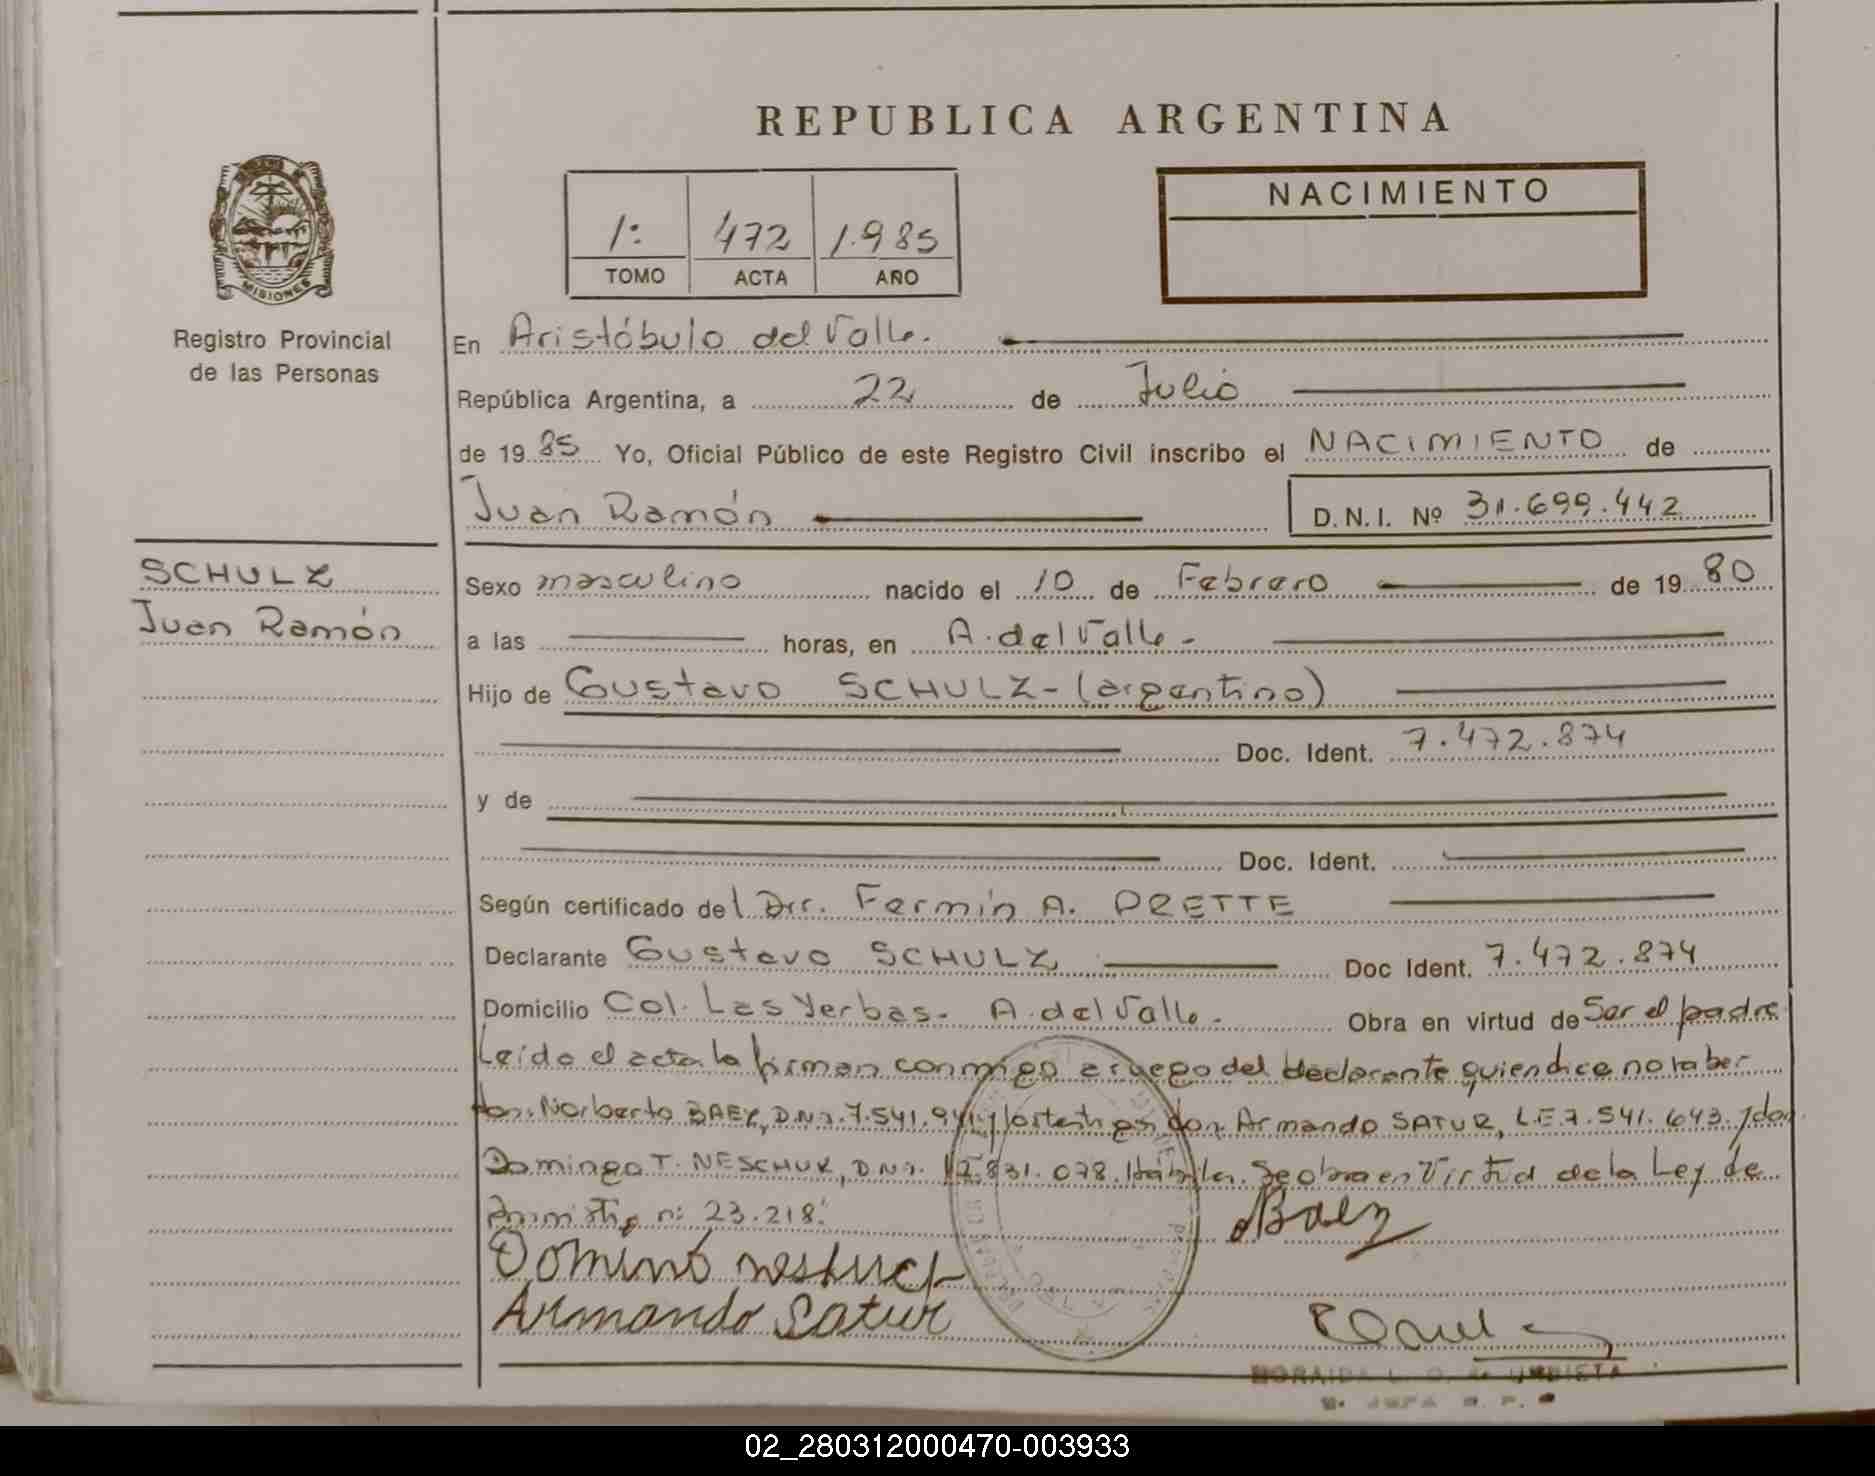 REPUBLICA ARGENTINA
NACIMIENTO
1: 472 1.985
TOMO ACTA AÑO
MISIONES
Registro Provincial
de las Personas
En Aristóbulo del Valle.
República Argentina, a 22 de Julio
de 19 85 Yo, Oficial Público de este Registro Civil inscribo el NACIMIENTO de
Juan Ramón D.N.I. Nº 31.699.442
SCHULZ
Juan Ramón
Sexo masculino nacido el 10 de Febrero de 19 80
a las horas, en A. del Valle -
Hijo de Gustavo SCHULZ - (argentino)
Doc. Ident. 7.472.874
y de
Doc. Ident.
Según certificado del Dr. Fermín A. PRETTE
Declarante Gustavo SCHULZ Doc Ident. 7.472.874
Domicilio Col. Las Yerbas - A. del Valle. Obra en virtud de Ser el padre
Leído el acta la firman conmigo a ruego del declarante quien dice no saber
don: Norberto BAEZ, D.N.I. 7.541.941 y los testigos don Armando SATUR, L.E. 7.541.643. y don
Domingo T. NESCHUK, D.N.I. 12.831.078. Hábiles. Se obra en Virtud de la Ley de
Amnistía n: 23.218.
Baez
Armando Satur
02_280312000470-003933